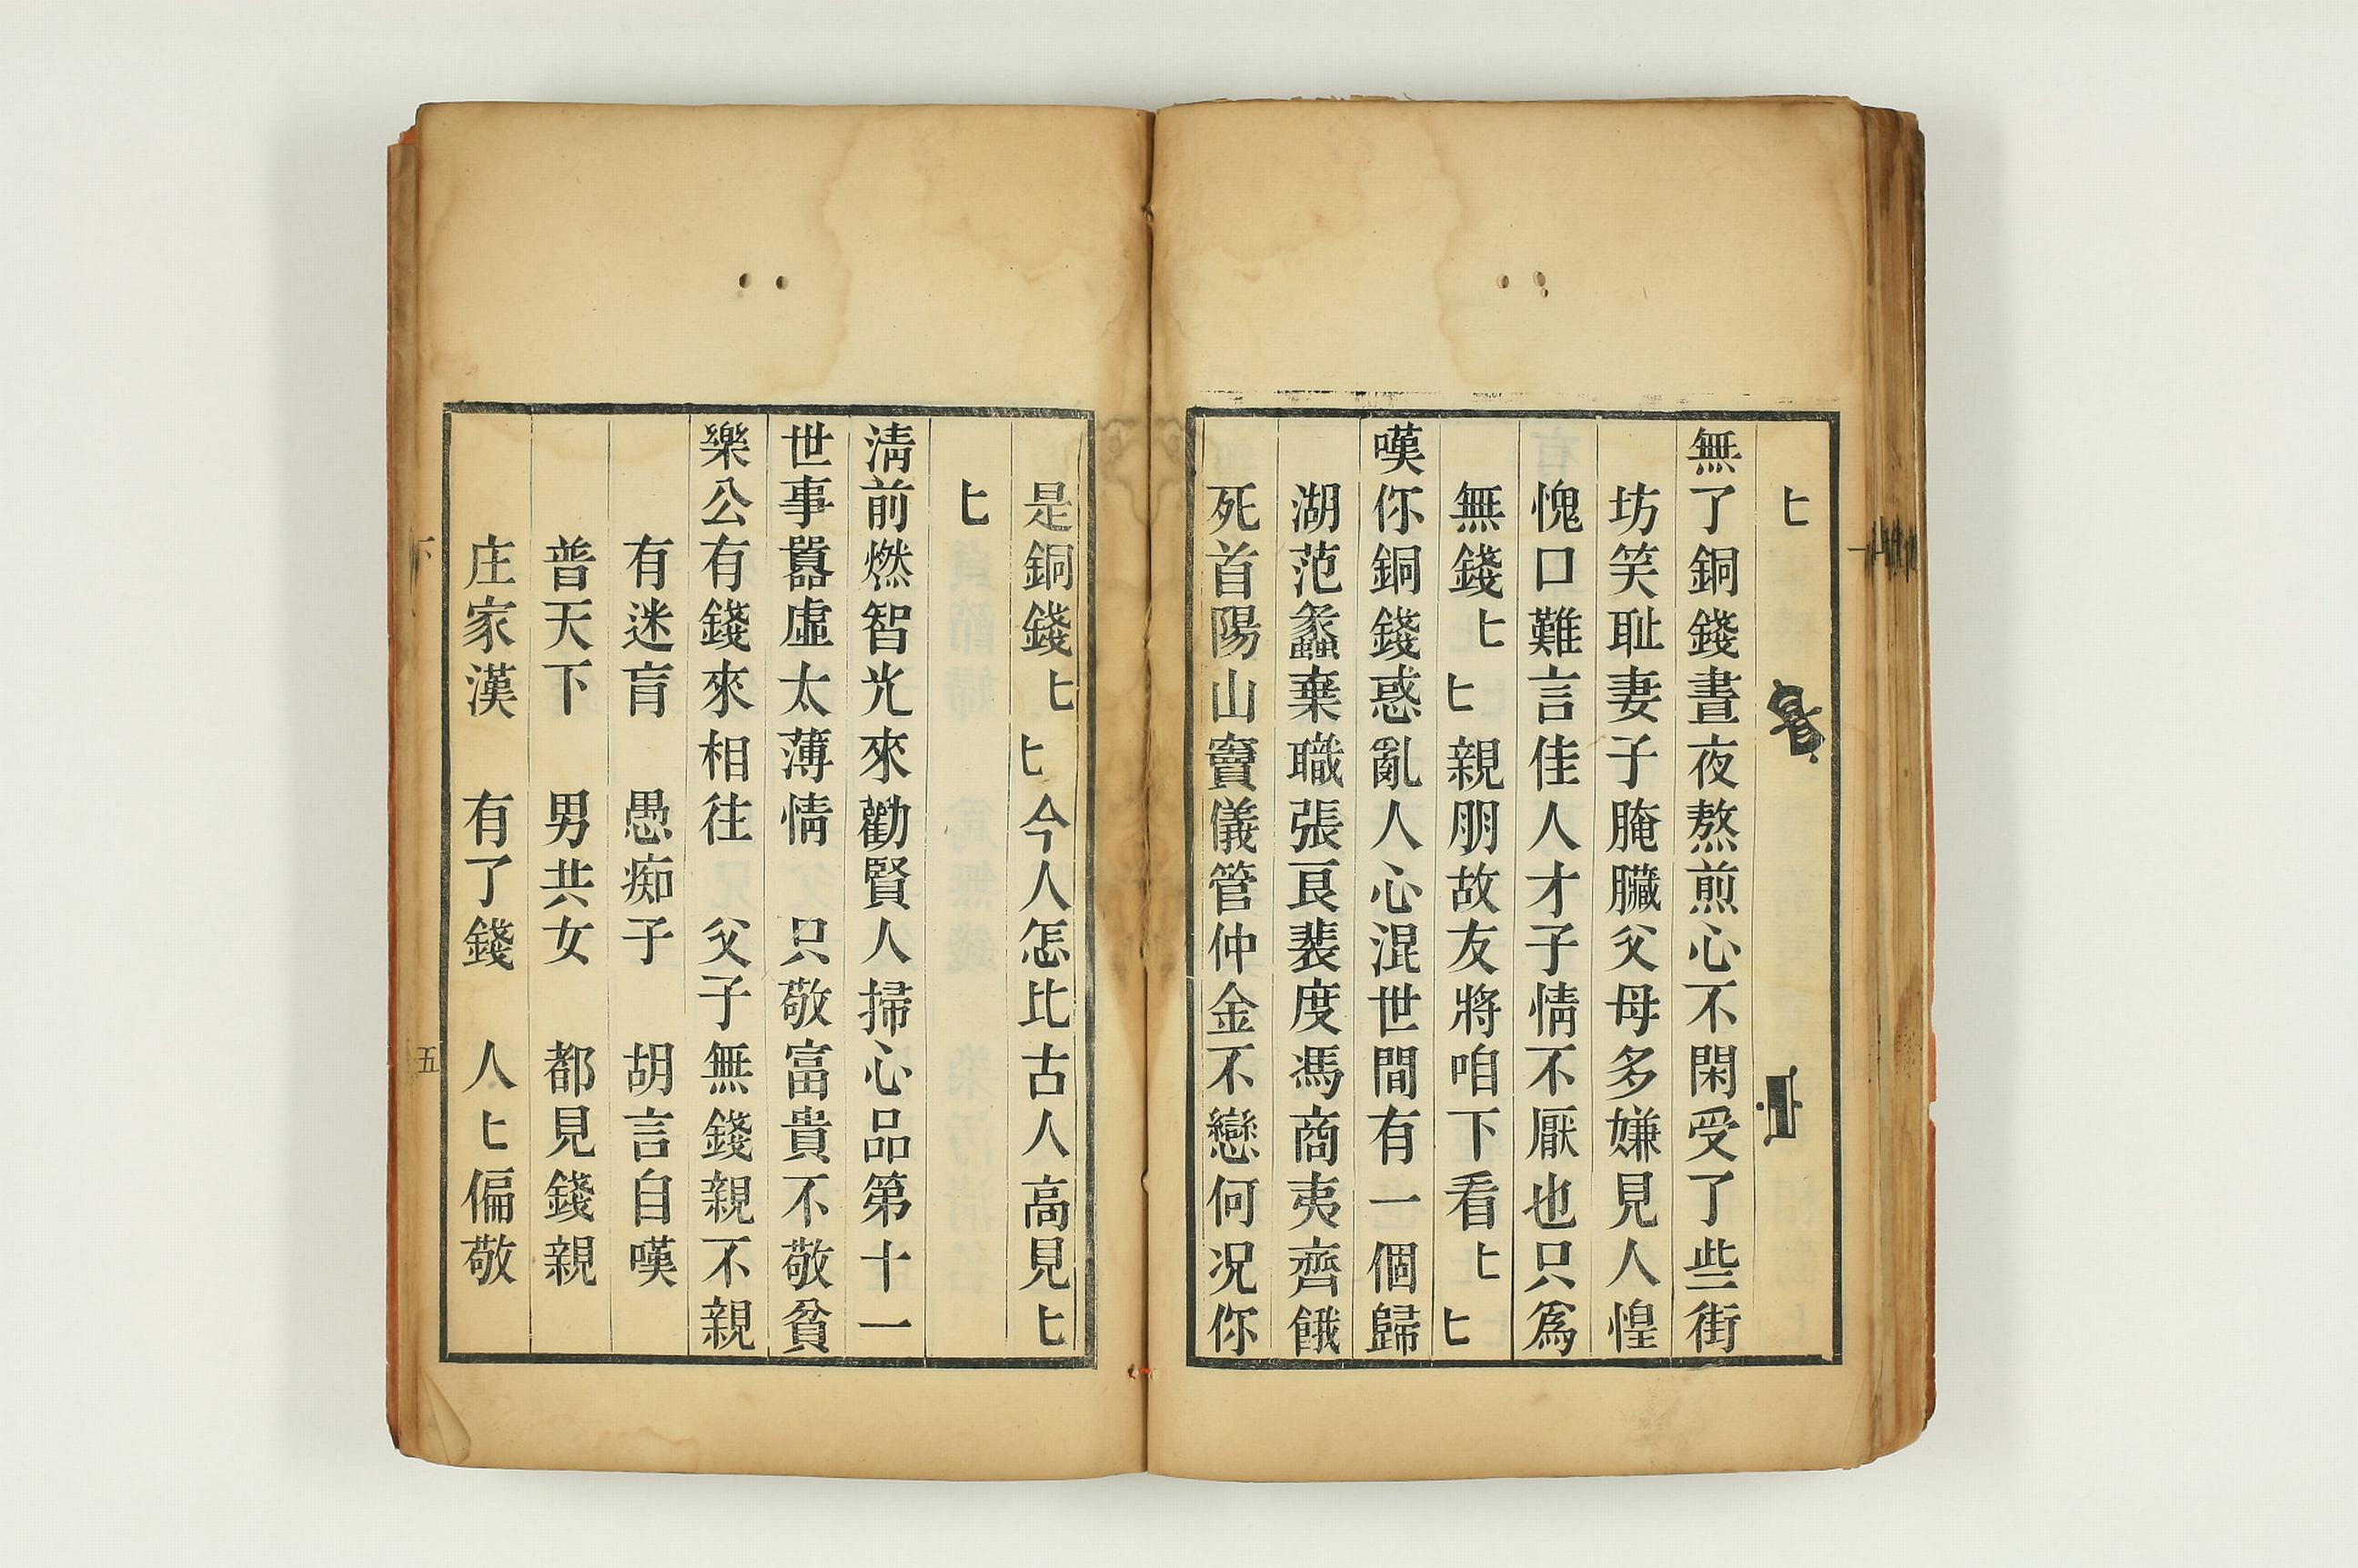 匕
無了銅錢晝夜熬煎心不閑受了些街
坊笑耻妻子腌臢父母多嫌見人惶
愧口難言佳人才子情不厭也只為
無錢匕匕親朋故友將咱下看匕匕
嘆你銅錢惑亂人心混世間有一個歸
湖范蠡棄職張良裴度馮商夷齊餓
死首陽山竇儀管仲金不戀何况你
是銅錢匕匕今人怎比古人高見匕
匕
淸前燃智光來勸賢人掃心品第十一
世事囂虛太薄情　只敬富貴不敬貧
樂公有錢來相往　父子無錢親不親
有迷肓　愚痴子　胡言自嘆
普天下　男共女　都見錢親
庄家漢　有了錢　人匕偏敬
下　五